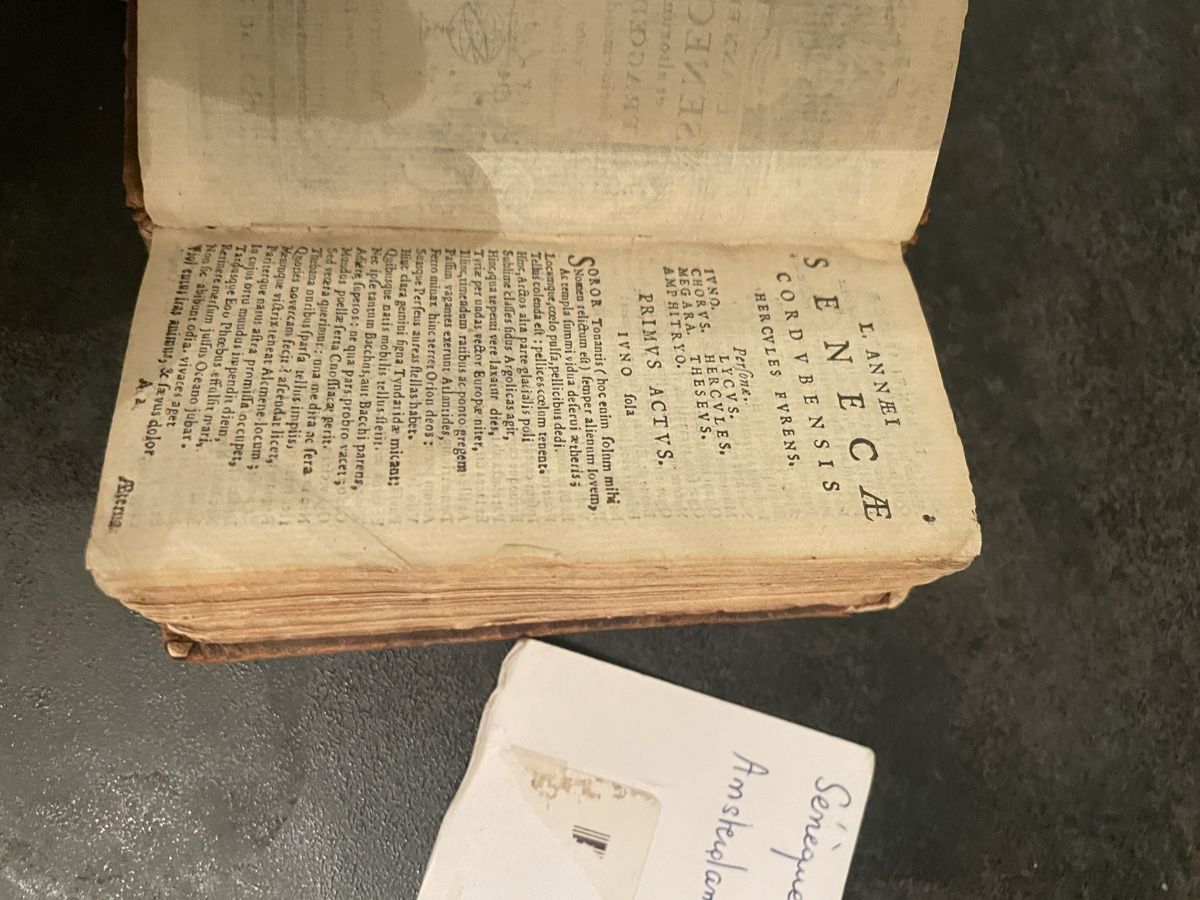 L. ANNÆI
SENECÆ
CORDVBENSIS
HERCVLES FVRENS.
Perſonæ.
IVNO. LYCVS.
CHORVS. HERCVLES.
MEGARA. THESEVS.
AMPHITRYO.
PRIMVS ACTVS.
IVNO ſola
SOROR Tonantis (hoc enim ſolum mihi
Nomen relictum eſt) ſemper alienum Iovem,
Ac templa ſummi vidua deſerui ætheris;
Locumque, cœlo pulſa, pellicibus dedi.
Tellus colenda eſt: pellices cœlum tenent.
Hinc, Arctos alta parte glacialis poli
Sublime claſſes ſidus Argolicas agit,
Hinc, qua tepenti vere laxatur dies,
Tyriæ per undas vector Europæ nitet,
Illinc, timendum ratibus ac ponto gregem
Paſſim vagantes exerunt Atlantides,
Ferro minax hinc terret Orion deos:
Suasque Perſeus aureas ſtellas habet.
Hinc clara gemini ſigna Tyndaridæ micant:
Quibuſque natis mobilis tellus ſtetit.
Nec ipſe tantum Bacchus, aut Bacchi parens,
Adiere ſuperos: ne qua pars probro vacet;
Mundus puellæ ſerta Cnoſſiacæ gerit.
Sed vetera querimur: una me dira ac fera
Thebana nuribus ſparſa tellus impiis,
Quoties novercam fecit? aſcendat licet,
Meumque victrix teneat Alcmene locum;
Pariterque natus aſtra promiſſa occupet,
In cujus ortu mundus impendit diem,
Tarduſque Eoo Phœbus effulſit mari,
Retinere merſum juſſus Oceano jubar.
Non ſic abibunt odia. vivaces aget
Violentus iras animus, & ſævus dolor
A 2 Æterna
Sénèque